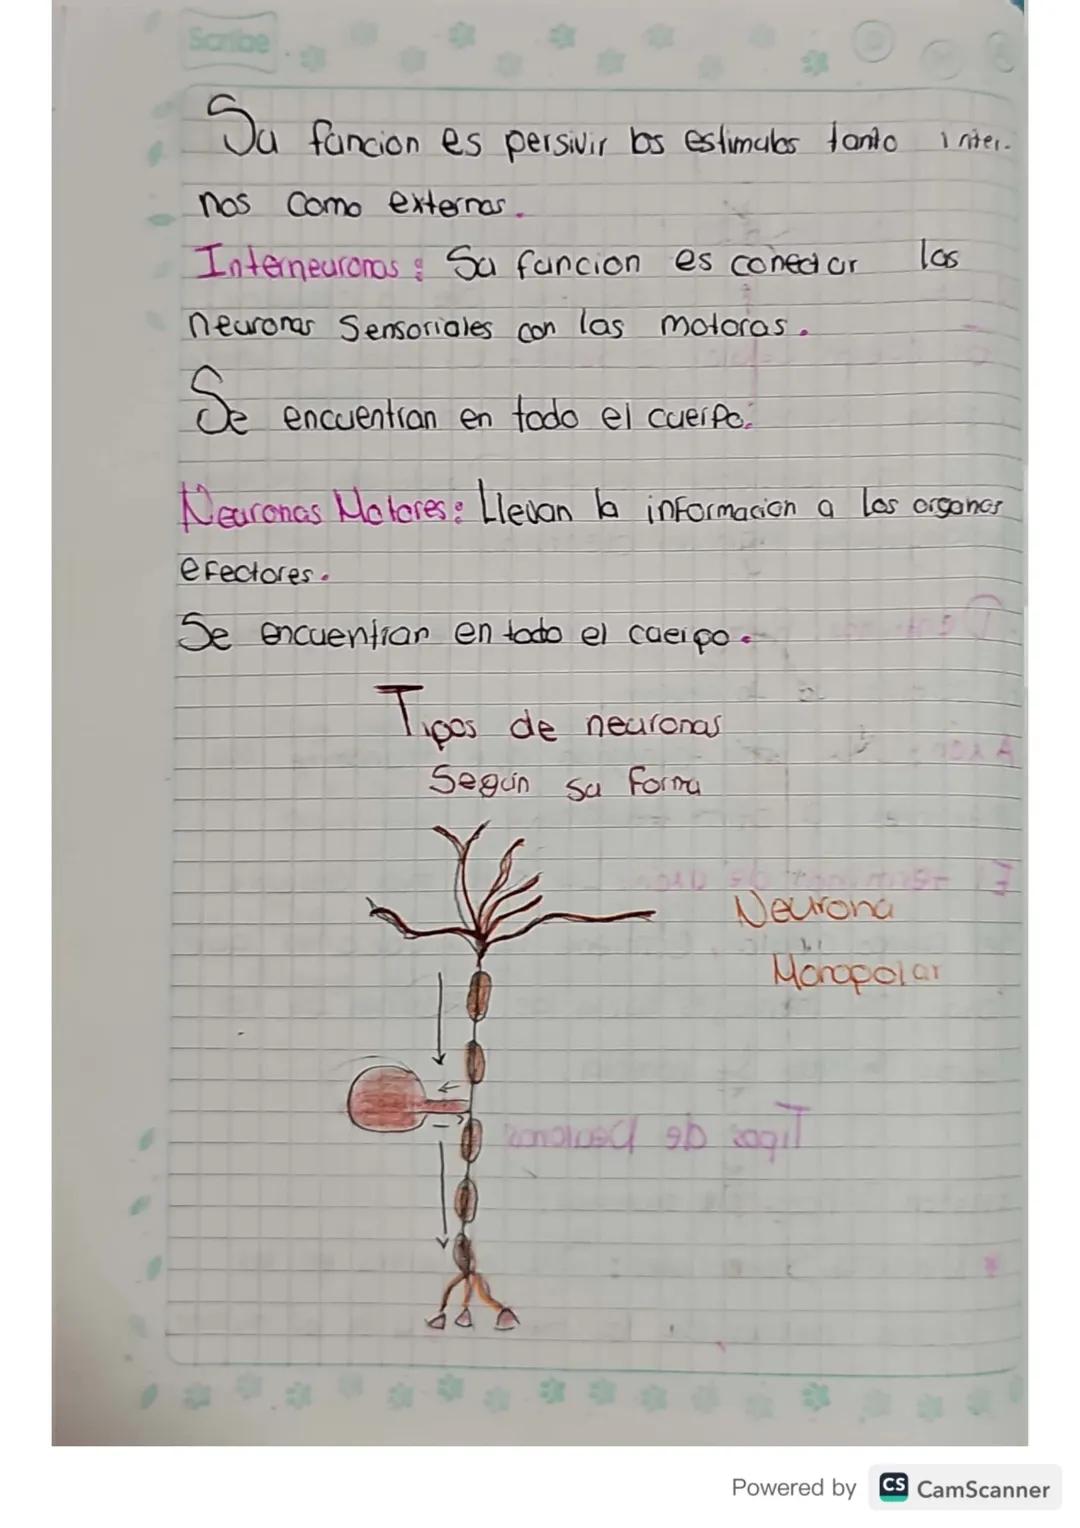 Scribe
Su funcion es persivir los estimulos tanto inter-
nos como externos.
Interneuronas: Su funcion es conectar las
neuronas Sensoriales con las motoras.
Se encuentran en todo el cuerpo.
Neuronas Motores: Llevan la informacion a los organos
efectores.
Se encuentran en todo el cuerpo.
Tipos de neuronas
Según su forma
Neurona
Monopolar
Powered by CS CamScanner